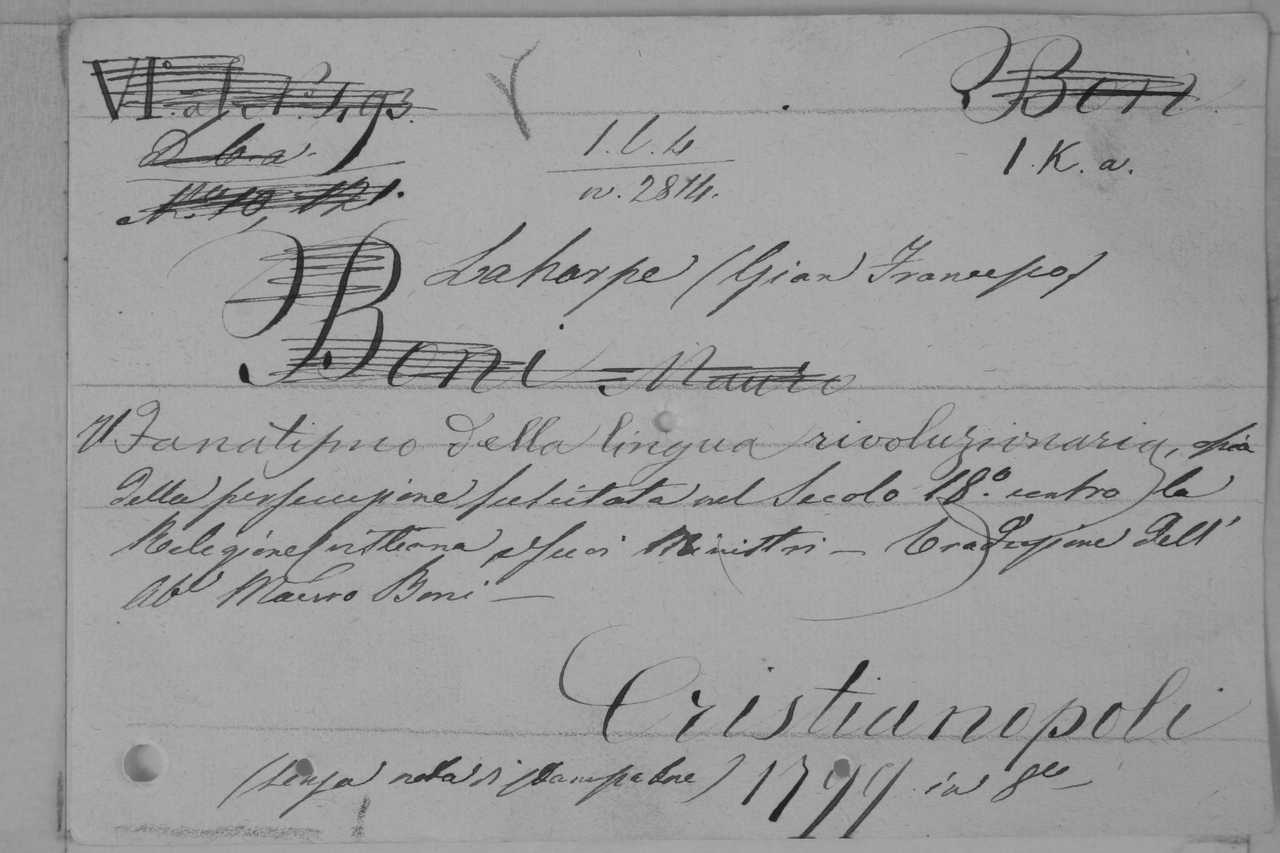 VI.a N.° 493. Boni
D b a. I. l. 4 I. K. a.
N.° 10,121. n. 2814.
Laharpe (Gian Francesco)
Boni Mauro
Il Fanatismo della lingua rivoluzionaria, ossia
della persecuzione suscitata nel Secolo 18.° contro la
Religione Cristiana e suoi Ministri — Traduzione dell'
Ab.e Mauro Boni —
Cristianopoli
(senza nota di stampatore) 1799 in 8.vo